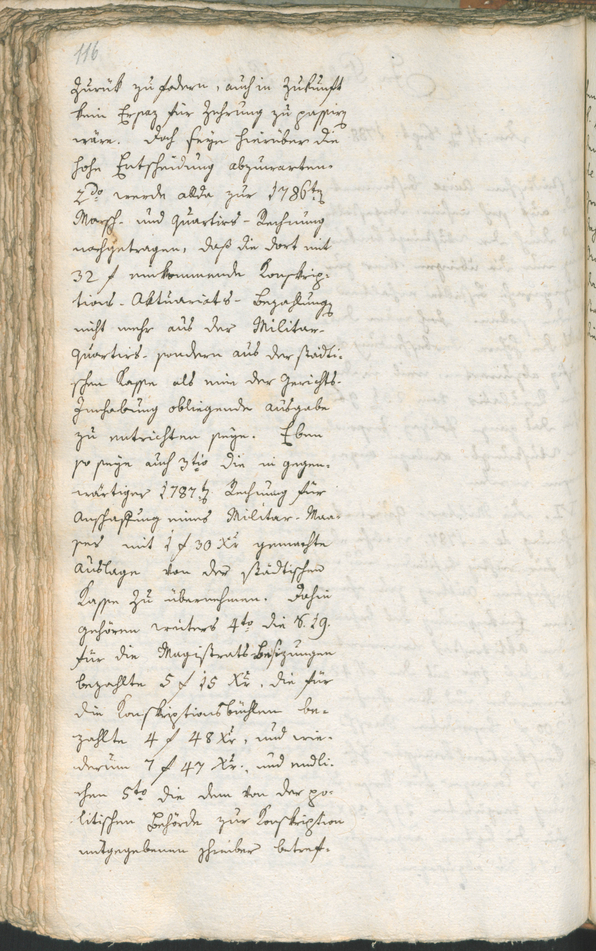 116
zurük zu fodern, auch in Zukunft
kein Ersaz für Zehrung zu passiren
wäre. Doch seye hierüber die
hohe Entscheidung abzuwarten.
2do werde allda zur 1786ten
Marsch- und Quartirs-Rechnung
nachgetragen, daß die dort mit
32 f einkommende Konskrip-
tions-Aktuariats-Bezahlung
nicht mehr aus der Militar-
Quartirs- sondern aus der städti-
schen Kasse als eine der Gerichts-
Innhabung obliegende Ausgabe
zu entrichten seye. Eben
so seye auch 3tio die in gegen-
wärtiger 1787ten Rechnung für
Anschaffung eines Militar-Maa-
ses mit 1 f 30 Xr gemachte
Auslage von der städtischen
Kasse zu übernehmen. Dahin
gehören weiters 4to die S. 19.
für die Magistrats-Besizungen
bezahlte 5 f 15 Xr. die für
die Konskriptionsbüchlen be-
zahlte 4 f 48 Xr, und wie-
derum 7 f 47 Xr., und endli-
chen 5to die dem von der po-
litischen Behörde zur Konskription
mitgegebenen Schreiber betref-